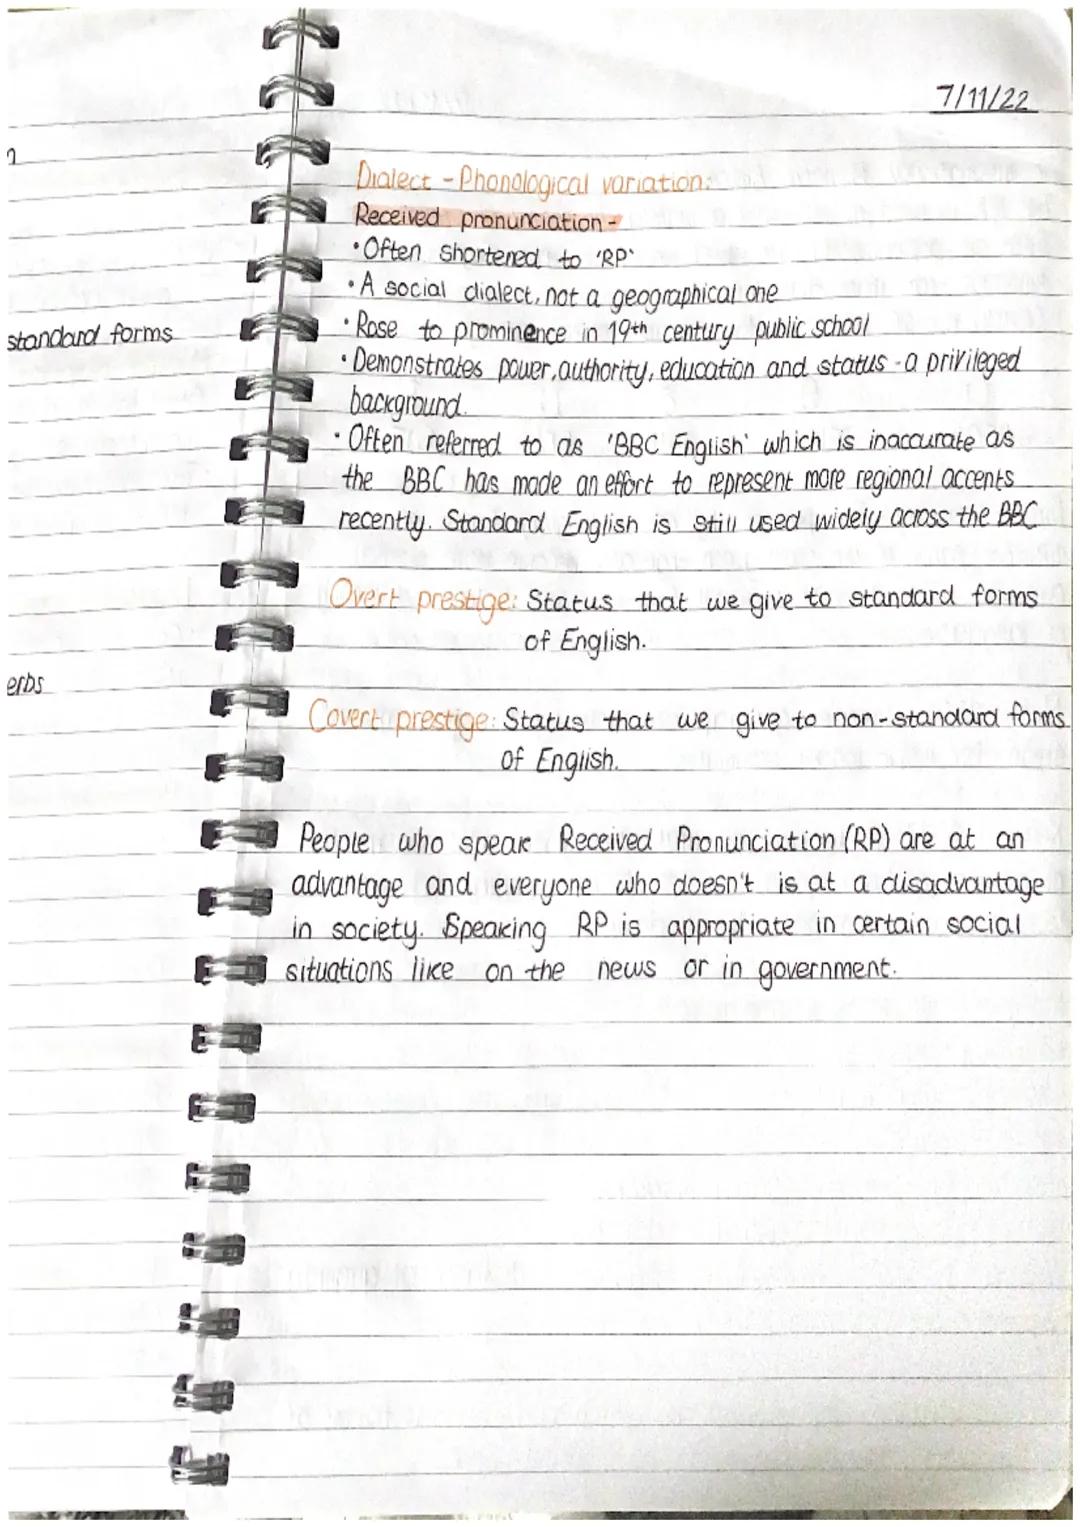 7/11/22
Dialect - Phonological variation:
Received pronunciation -
• Often shortened to 'RP'
• A social dialect, not a geographical one
standard forms
• Rose to prominence in 19th century public school
• Demonstrates power, authority, education and status - a privileged
background.
• Often referred to as 'BBC English' which is inaccurate as
the BBC has made an effort to represent more regional accents
recently. Standard English is still used widely across the BBC
Overt prestige: Status that we give to standard forms
of English.
erbs
Covert prestige: Status that we give to non-standard forms
of English.
People who speak Received Pronunciation (RP) are at an
advantage and everyone who doesn't is at a disadvantage
in society. Speaking RP is appropriate in certain social
situations like on the news or in government.